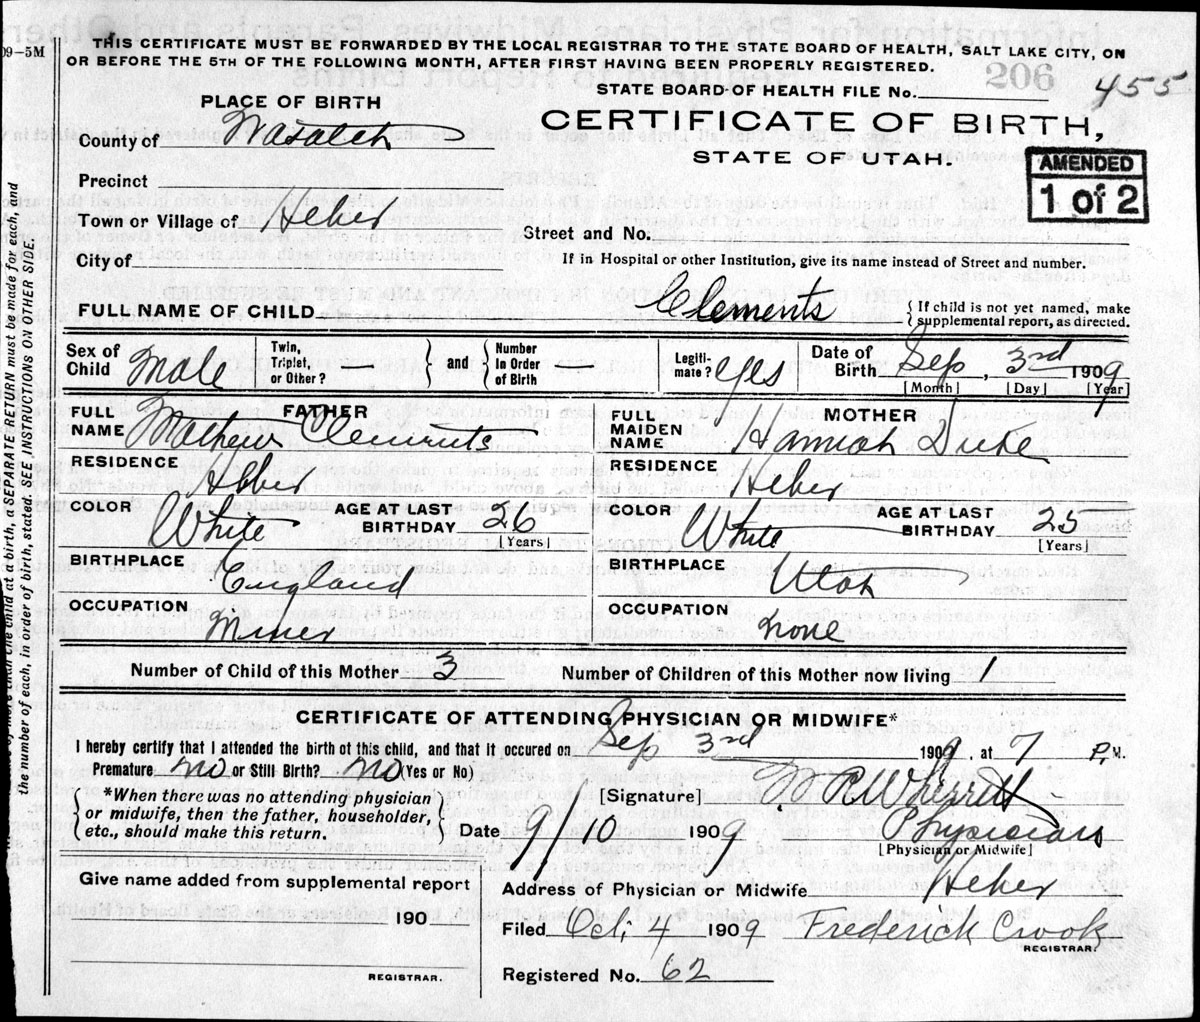 09-5M
THIS CERTIFICATE MUST BE FORWARDED BY THE LOCAL REGISTRAR TO THE STATE BOARD OF HEALTH, SALT LAKE CITY, ON
OR BEFORE THE 5TH OF THE FOLLOWING MONTH, AFTER FIRST HAVING BEEN PROPERLY REGISTERED.
206
455
STATE BOARD OF HEALTH FILE No.
PLACE OF BIRTH
CERTIFICATE OF BIRTH,
STATE OF UTAH.
AMENDED
1 of 2
County of Wasatch
Precinct
Town or Village of Heber
Street and No.
City of
If in Hospital or other Institution, give its name instead of Street and number.
FULL NAME OF CHILD Clements
{ If child is not yet named, make
supplemental report, as directed.
Sex of
Child Male
Twin,
Triplet,
or Other?
} and {
Number
In Order
of Birth
Legiti-
mate? Yes
Date of
Birth Sep. 3rd 1909
[Month] [Day] [Year]
FATHER
FULL
NAME Mathew Clements
RESIDENCE
Heber
COLOR White
AGE AT LAST
BIRTHDAY 26
[Years]
BIRTHPLACE
England
OCCUPATION
Miner
MOTHER
FULL
MAIDEN
NAME Hannah Duke
RESIDENCE
Heber
COLOR White
AGE AT LAST
BIRTHDAY 25
[Years]
BIRTHPLACE
Utah
OCCUPATION
none
Number of Child of this Mother 3
Number of Children of this Mother now living 1
CERTIFICATE OF ATTENDING PHYSICIAN OR MIDWIFE*
I hereby certify that I attended the birth of this child, and that it occured on Sep 3rd 1909, at 7 P.M.
Premature no or Still Birth? no (Yes or No)
{ *When there was no attending physician
or midwife, then the father, householder,
etc., should make this return. }
[Signature] Wherritt
Date 9/10 1909 Physician
[Physician or Midwife]
Give name added from supplemental report
190
REGISTRAR.
Address of Physician or Midwife Heber
Filed Oct; 4 1909 Frederick Crook
REGISTRAR.
Registered No. 62
a SEPARATE RETURN must be made for each, and
the number of each, in order of birth, stated. SEE INSTRUCTIONS ON OTHER SIDE.